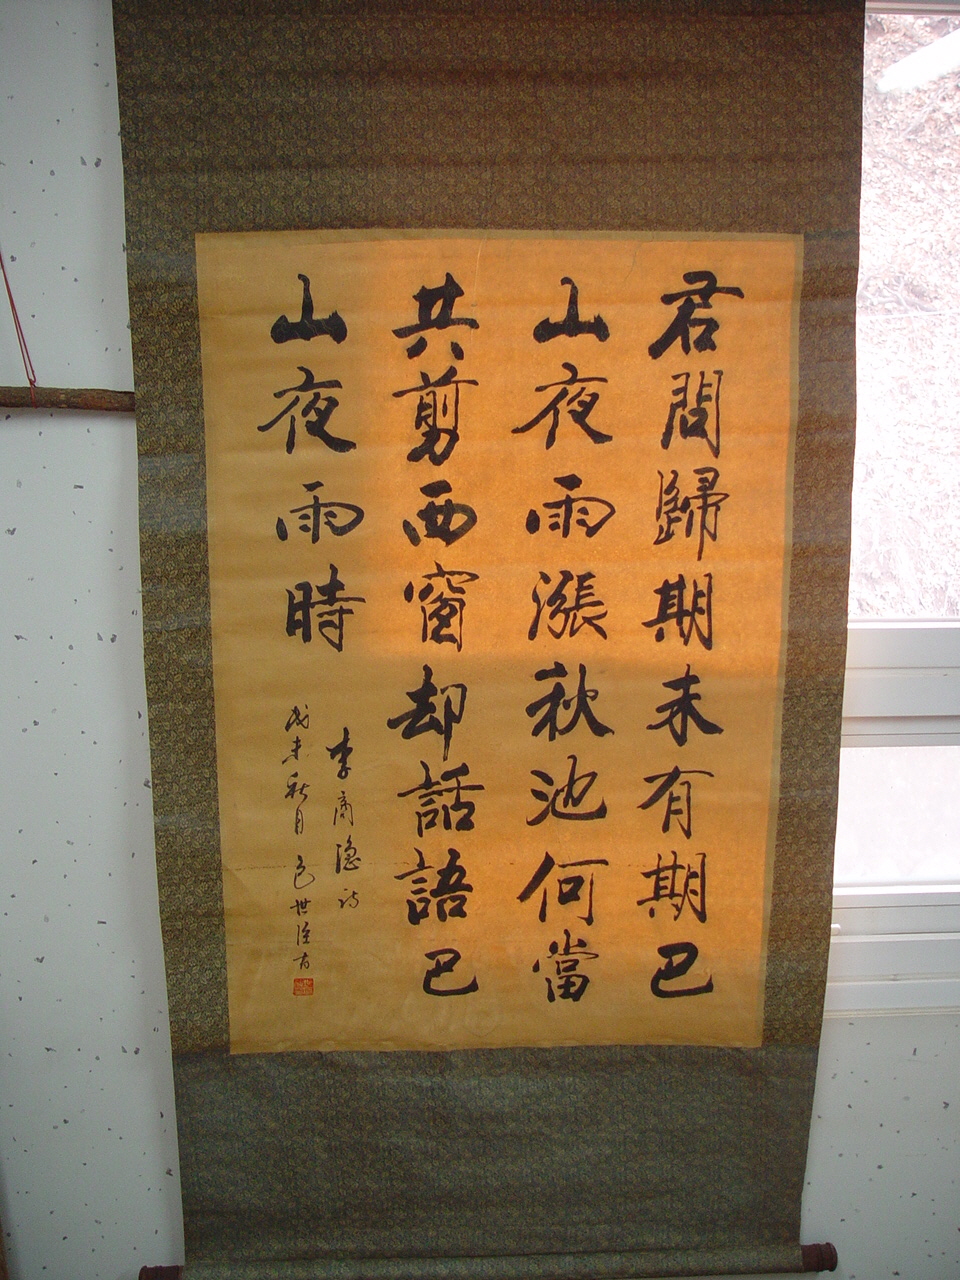 君問歸期未有期巴
山夜雨漲秋池何當
共剪西窗却話語巴
山夜雨時
李商隱詩
未秋月 包世臣書